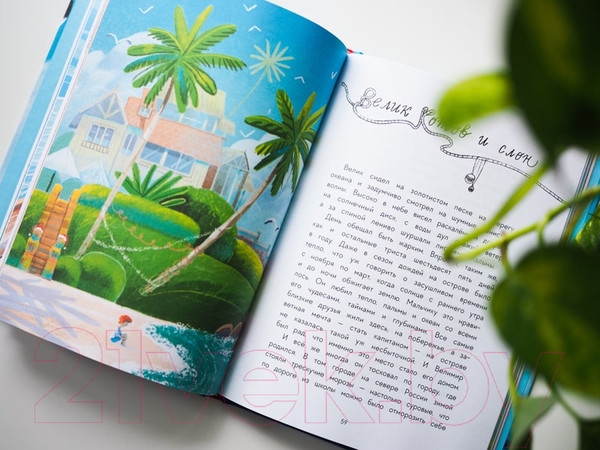 Велик Котов и слон
Велик сидел на золотистом песке на берегу
океана и задумчиво смотрел на шумные
волны. Высоко в небе висел раскалённый
солнечный диск, с воды дул
а за спиной лениво шуршали
День обещал быть жарким. Впрочем, таким же,
как и остальные триста шестьдесят пять дней
в году. Даже в сезон дождей на острове было
тепло, что уж говорить о засушливом времени
с ноября по март, когда солнце с раннего утра
до ночи обжигает землю. Мальчику это нрави-
лось. Он любил тепло, пальмы и океан со всеми
его чудесами, тайнами и глубинами. Все самые
близкие друзья жили здесь, на побережье, а за-
ветная мечта — стать капитаном — на острове
не казалась такой уж несбыточной. И Велимир
был рад, что именно это место стало его домом.
И всё же иногда он тосковал по городу, где
родился. В том городе на севере России зимой
стояли трескучие морозы — настолько суровые, что
по дороге из школы можно было отморозить себе
59
21vek.by